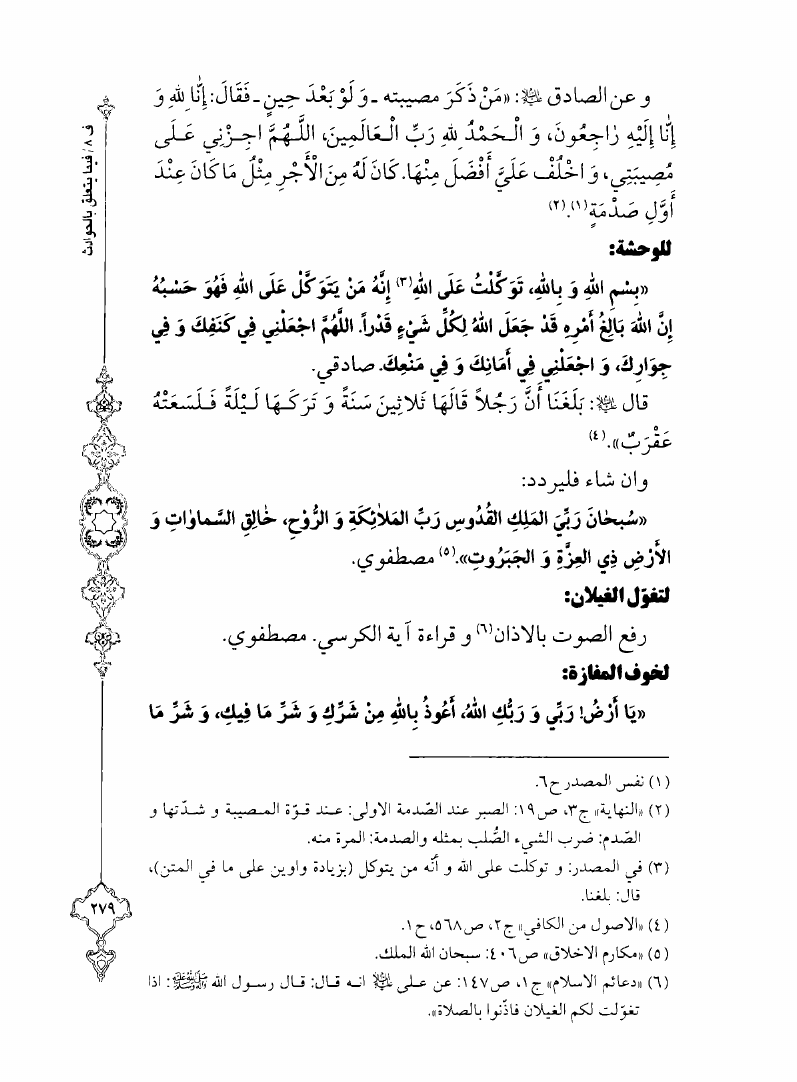 و عن الصادق ﷺ: «مَنْ ذَكَرَ مصيبته ـ وَ لَوْ بَعْدَ حِينٍ ـ فَقَالَ: إِنَّا لِلهِ وَ
إِنَّا إِلَيْهِ رٰاجِعُونَ، وَ الْحَمْدُ لِلهِ رَبِّ الْعَالَمِينَ، اللَّهُمَّ اجِرْنِي عَلَى
مُصِيبَتِي، وَ اخْلُفْ عَلَيَّ أَفْضَلَ مِنْهَا. كَانَ لَهُ مِنَ الْأَجْرِ مِثْلُ مَا كَانَ عِنْدَ
أَوَّلِ صَدْمَةٍ(١).(٢)
للوحشة:
«بِسْمِ اللهِ وَ بِاللهِ، تَوَكَّلْتُ عَلَى اللهِ(٣) إِنَّهُ مَنْ يَتَوَكَّلْ عَلَى اللهِ فَهُوَ حَسْبُهُ
إِنَّ اللهَ بَالِغُ أَمْرِهِ قَدْ جَعَلَ اللهُ لِكُلِّ شَيْءٍ قَدْراً. اللَّهُمَّ اجْعَلْنِي فِي كَنَفِكَ وَ فِي
جِوَارِكَ، وَ اجْعَلْنِي فِي أَمَانِكَ وَ فِي مَنْعِكَ. صادقي.
قال ﷺ: بَلَغَنَا أَنَّ رَجُلاً قَالَهَا ثَلاثِينَ سَنَةً وَ تَرَكَهَا لَيْلَةً فَلَسَعَتْهُ
عَقْرَبٌ».(٤)
وان شاء فليردد:
«سُبحٰانَ رَبِّيَ المَلِكِ القُدُّوسِ رَبِّ المَلاٰئِكَةِ وَ الرُّوْحِ، خٰالِقِ السَّماوٰاتِ وَ
الأَرْضِ ذِي العِزَّةِ وَ الجَبَرُوتِ».(٥) مصطفوي.
لتغوّل الغيلان:
رفع الصوت بالاذان(٦) و قراءة آية الكرسي. مصطفوي.
لخوف المفازة:
«يَا أَرْضُ! رَبِّي وَ رَبُّكِ اللهُ، أَعُوذُ بِاللهِ مِنْ شَرِّكِ وَ شَرِّ مَا فِيكِ، وَ شَرِّ مَا
(١) نفس المصدر ح٦.
(٢) «النهاية» ج٣، ص١٩: الصبر عند الصّدمة الاولى: عند قوّة المصيبة و شدّتها و
الصّدم: ضرب الشيء الصُّلب بمثله والصدمة: المرة منه.
(٣) في المصدر: و توكلت على الله و أنّه من يتوكل (بزيادة واوين على ما في المتن)،
قال: بلغنا.
(٤) «الاصول من الكافي» ج٢، ص٥٦٨، ح١.
(٥) «مكارم الاخلاق» ص٤٠٦: سبحان الله الملك.
(٦) «دعائم الاسلام» ج١، ص١٤٧: عن علي ﷺ انه قال: قال رسول الله ﷺ: اذا
تغوّلت لكم الغيلان فاذّنوا بالصلاة».
ف ٨ / فيما يتعلق بالحوادث
٢٧٩